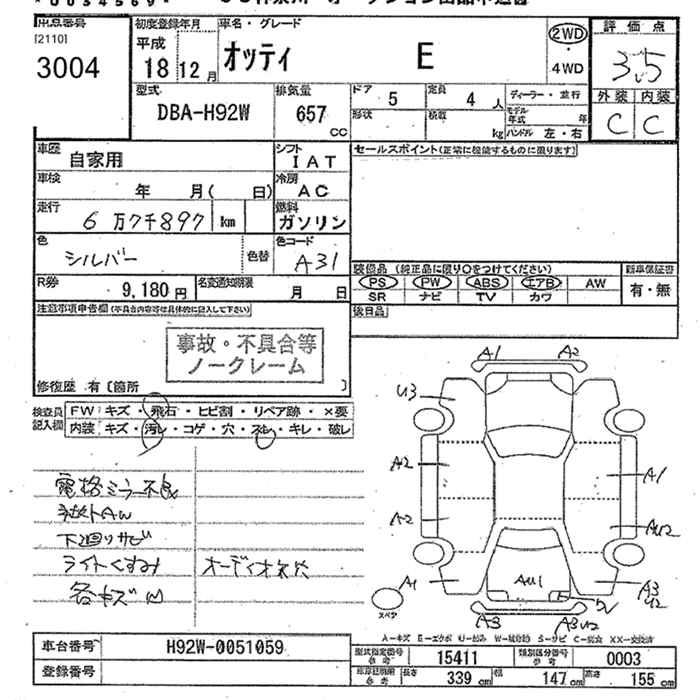 *0034569*
出品番号
[2110]
3004
初度登録年月
平成
18 12 月
車名・グレード
オッティ E
2WD
・
4WD
評価点
3.5
外装 内装
C C
型式
DBA-H92W
排気量
657
CC
ドア
5
定員
4 人
形状
積載
kg
ディーラー・並行
モデル年式 年
ハンドル 左・右
車歴
自家用
シフト
IAT
車検
年 月( 日)
冷房
AC
走行
6万7千897 km
燃料
ガソリン
色
シルバー
色替
色コード
A31
R券
9,180円
名変通知期限
月 日
セールスポイント(正常に機能するものに限ります)
装備品 (純正品に限り○をつけてください)
PS PW ABS エアB AW
SR ナビ TV カワ
新車保証書
有・無
後日品
注意事項申告欄(不具合内容等は具体的に記入して下さい)
事故・不具合等
ノークレーム
修復歴 有〔箇所 〕
検査員
記入欄
FW キズ・飛石・ヒビ割・リペア跡・×要
内装 キズ・汚レ・コゲ・穴・スレ・キレ・破レ
電格ミラー不良
下廻りサビ
ライトくすみ
オーディオネ穴
各キズW
A1 A2
U3
A2 A1
A2 AU2
A1 AU1 A3
U2
A3 A3U2
スペア
A-キズ E-エクボ U-凹み W-補修跡 S-サビ C-腐食 XX-交換済
車台番号
H92W-0051059
登録番号
型式指定番号
参考
15411
類別区分番号
参考
0003
長さ 339 cm
幅 147 cm
高さ 155 cm